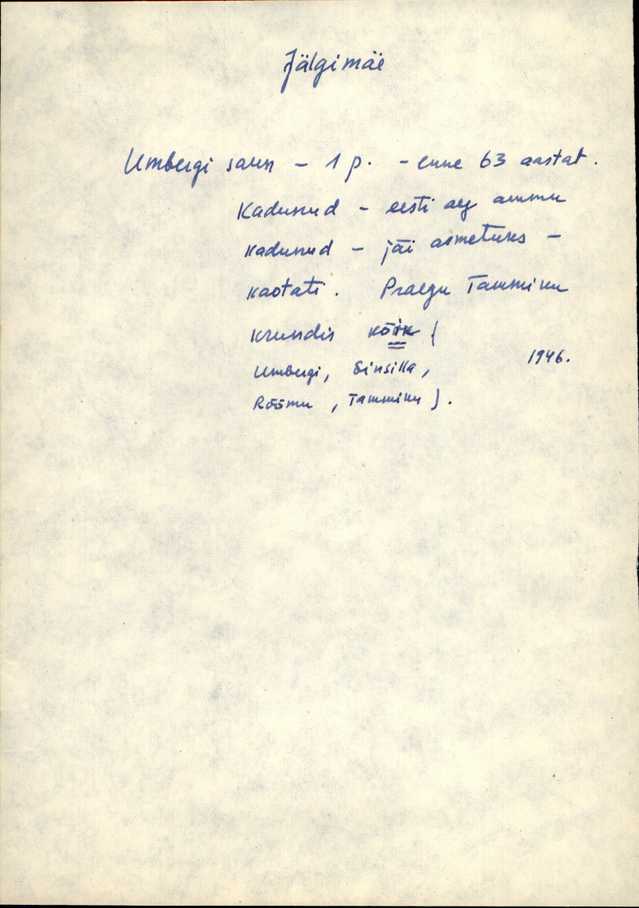 Jälgimäe
Umbergi saun – 1 p. – enne 63 aastat.
Kadunud – eesti aeg ammu
kadunud – jäi asmetuks –
kaotati. Praegu Tammiku
krundis kõik (
Umbergi, Sinsilla,
1946.
Rõõmu, Tammiku).